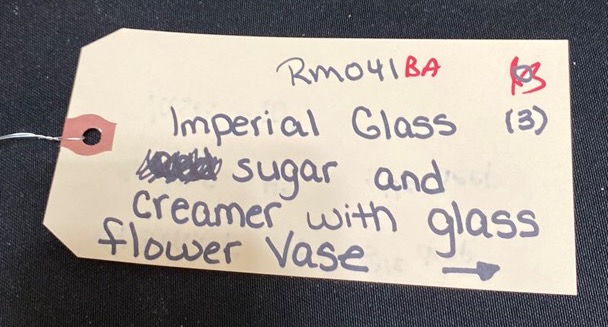 RM041BA
Imperial Glass (3)
sugar and
creamer with glass
flower Vase →